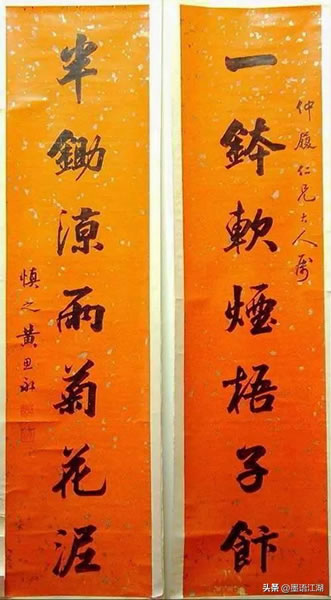 仲履仁兄大人屬
一鉢軟煙梧子飰
半鋤涼雨菊花泥
慎之黃思永
头条 @墨语江湖